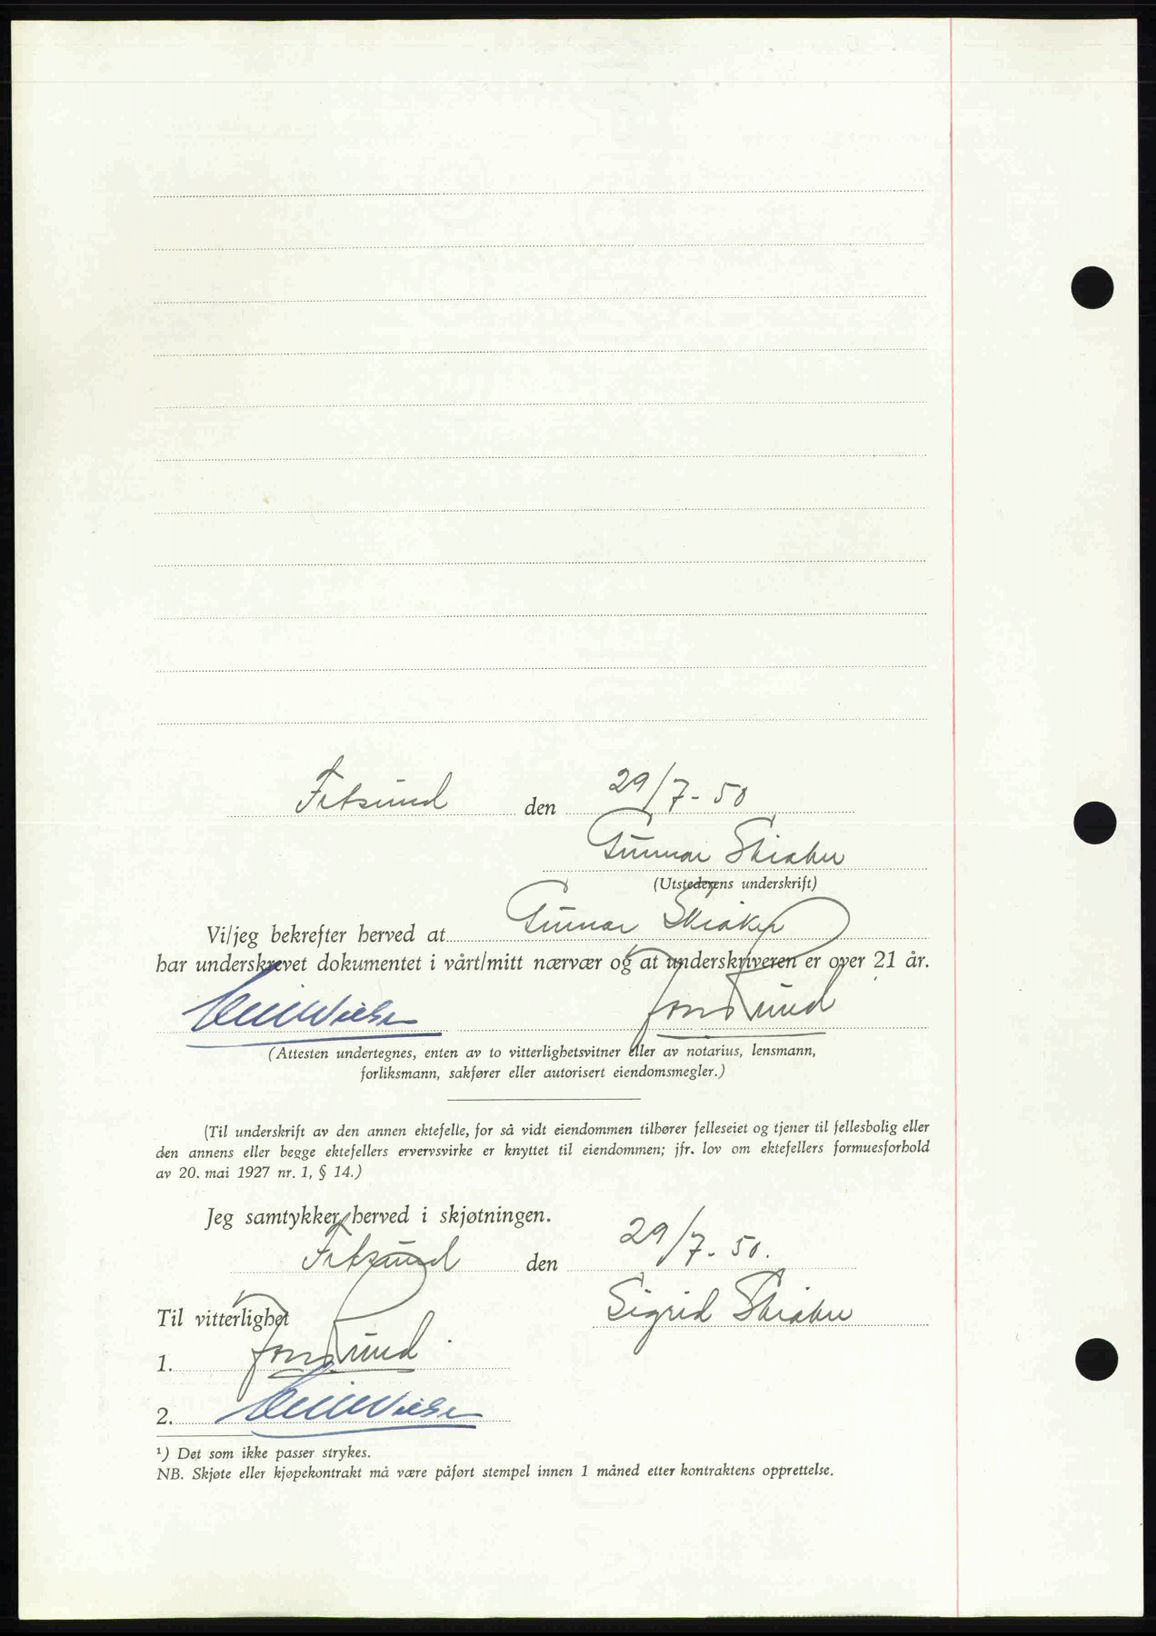 Fetsund den 29/7-50
Gunnar Skiaker
(Utstederens underskrift)
Vi/jeg bekrefter herved at Gunnar Skiaker
har underskrevet dokumentet i vårt/mitt nærvær og at underskriveren er over 21 år.
(Attesten undertegnes, enten av to vitterlighetsvitner eller av notarius, lensmann,
forliksmann, sakfører eller autorisert eiendomsmegler.)
(Til underskrift av den annen ektefelle, for så vidt eiendommen tilhører felleseiet og tjener til fellesbolig eller
den annens eller begge ektefellers ervervsvirke er knyttet til eiendommen; jfr. lov om ektefellers formuesforhold
av 20. mai 1927 nr. 1, § 14.)
Jeg samtykker herved i skjøtningen.
Fetsund den 29/7-50.
Til vitterlighet Sigrid Skiaker
1.
2.
¹) Det som ikke passer strykes.
NB. Skjøte eller kjøpekontrakt må være påført stempel innen 1 måned etter kontraktens opprettelse.